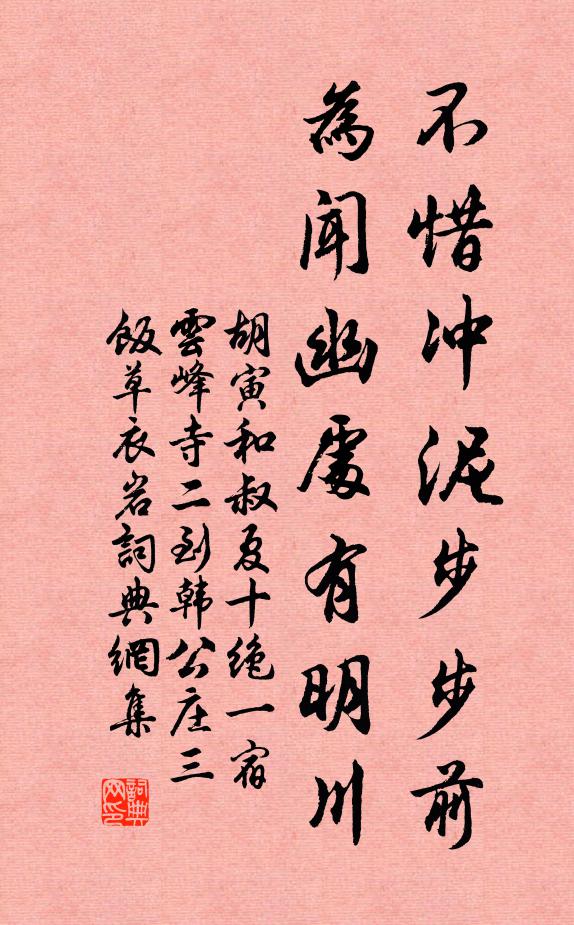 不惜冲泥步步前
為聞幽處有明川
胡寅和叔夏十絕一宿
雲峰寺二到韩公庄三
飯草衣岩詞典網集
詞典网印